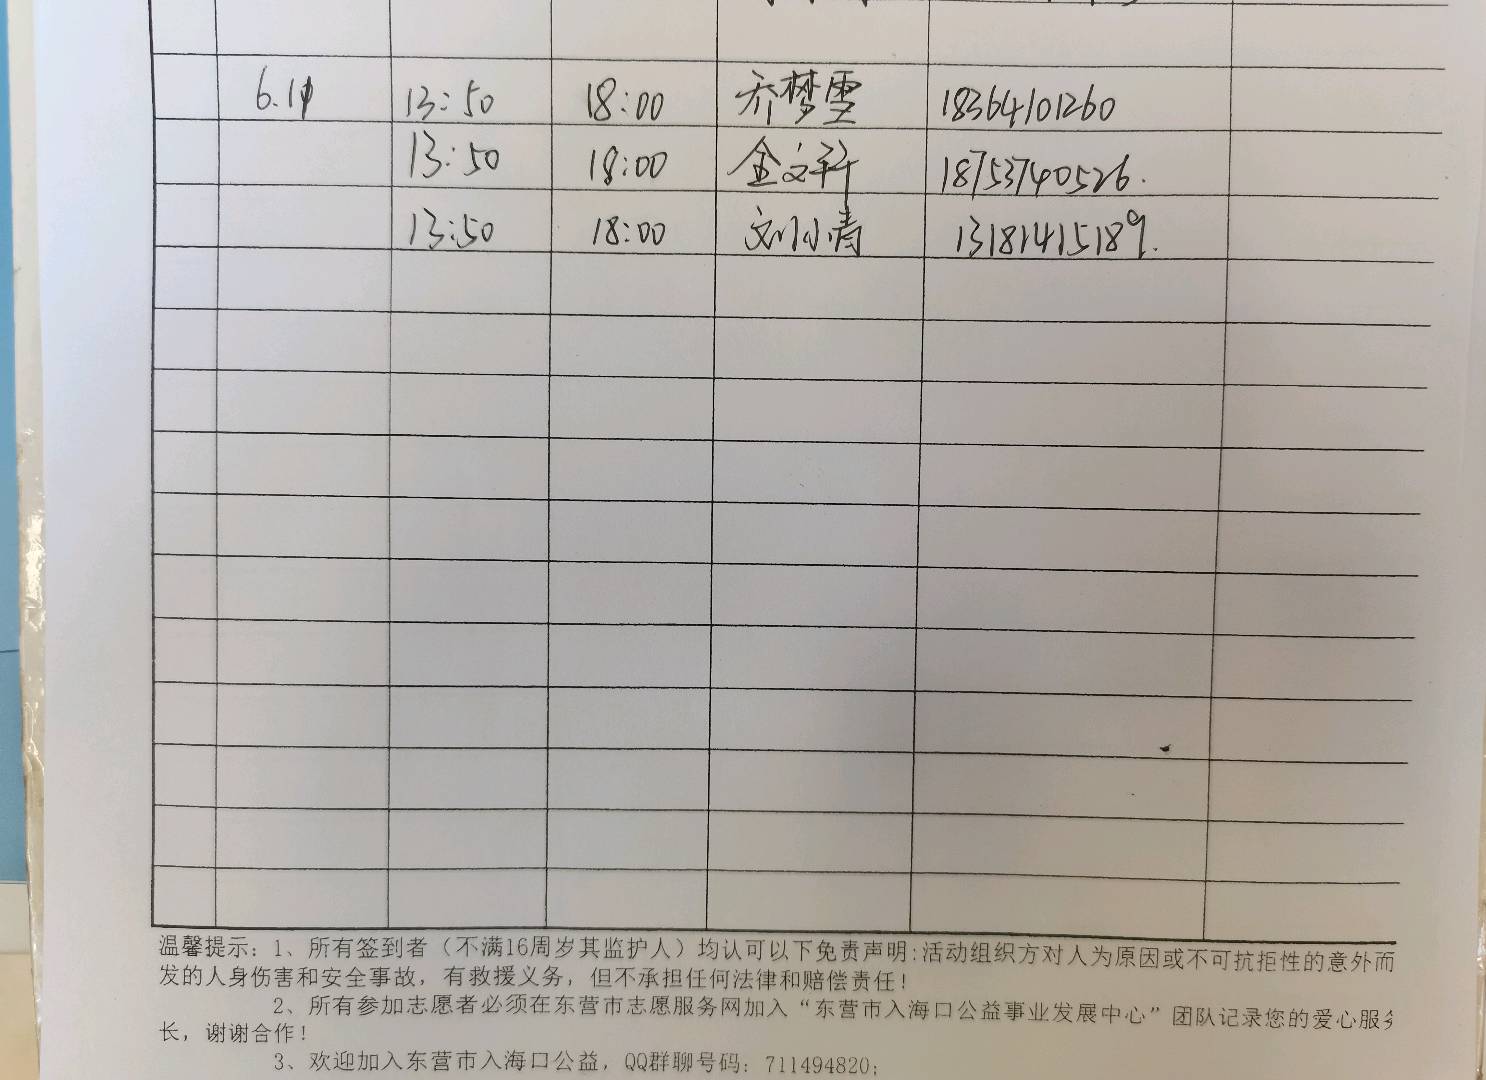 6.11 13:50 18:00 乔梦雪 18364101260
13:50 18:00 金文轩 18753740526.
13:50 18:00 刘小青 13181415189.
温馨提示：1、所有签到者（不满16周岁其监护人）均认可以下免责声明：活动组织方对人为原因或不可抗拒性的意外而
发的人身伤害和安全事故，有救援义务，但不承担任何法律和赔偿责任！
2、所有参加志愿者必须在东营市志愿服务网加入“东营市入海口公益事业发展中心”团队记录您的爱心服务
长，谢谢合作！
3、欢迎加入东营市入海口公益，QQ群聊号码：711494820；